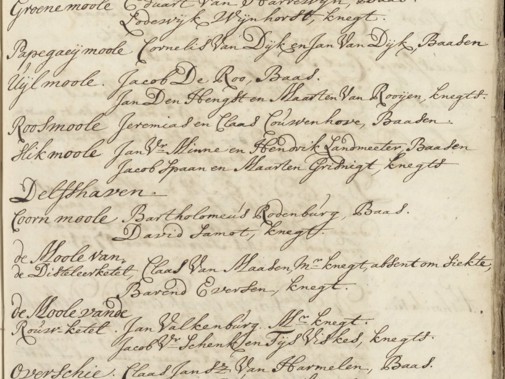 Groene moole Eduart Van Harrewijn, Baas.
Lodewijk Wijnhorst, knegt.
Papegaeij moole Cornelis Van Dijk en Jan Van Dijk, Baasen
Uijl moole. Jacob De Roo, Baas.
Jan Den Hengst en Maarten Van Rooijen, knegts.
Roosmoole Jeremias en Claas Couwenhove, Baasen.
Slikmoole Jan Vr. Minne en Hendrik Landmeeter, Baasen
Jacob Spaan en Maarten knegts
Delfshaven.
Coorn moole Bartholomeus Rodenburg, Baas.
David Samot, knegt.
de Moole van
de Disteleerketel, Claas Van Maasen, Mr. knegt, absent om Siekte,
Barend Eversen, knegt.
de Moole vande
Rouw-ketel. Jan Valkenburg. Mr. knegt.
Jacob Vr. Schenk, en Tijs Viskes, knegts.
Overschie. Claas Jansz. Van Harmelen, Baas.